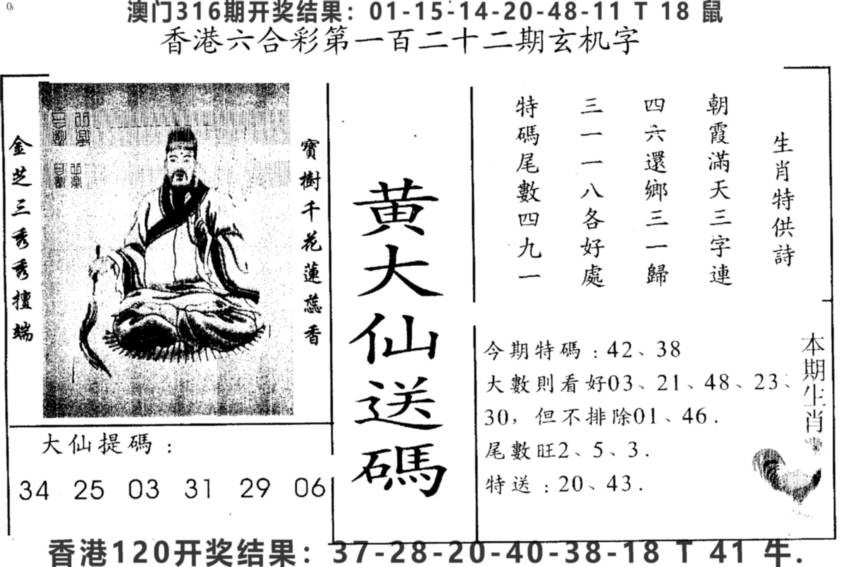 澳门316期开奖结果：01-15-14-20-48-11 T 18 鼠
香港六合彩第一百二十二期玄机字
金芝三秀秀擅端
寶樹千花蓮蕊香
大仙提碼：
34 25 03 31 29 06
黄大仙送碼
生肖特供詩
朝霞滿天三字連
四六還鄉三一歸
三一一八各好處
特碼尾數四九一
今期特碼：42、38
大數則看好03、21、48、23、
30，但不排除01、46.
尾數旺2、5、3.
特送：20、43.
本期生肖
香港120开奖结果：37-28-20-40-38-18 T 41 牛.